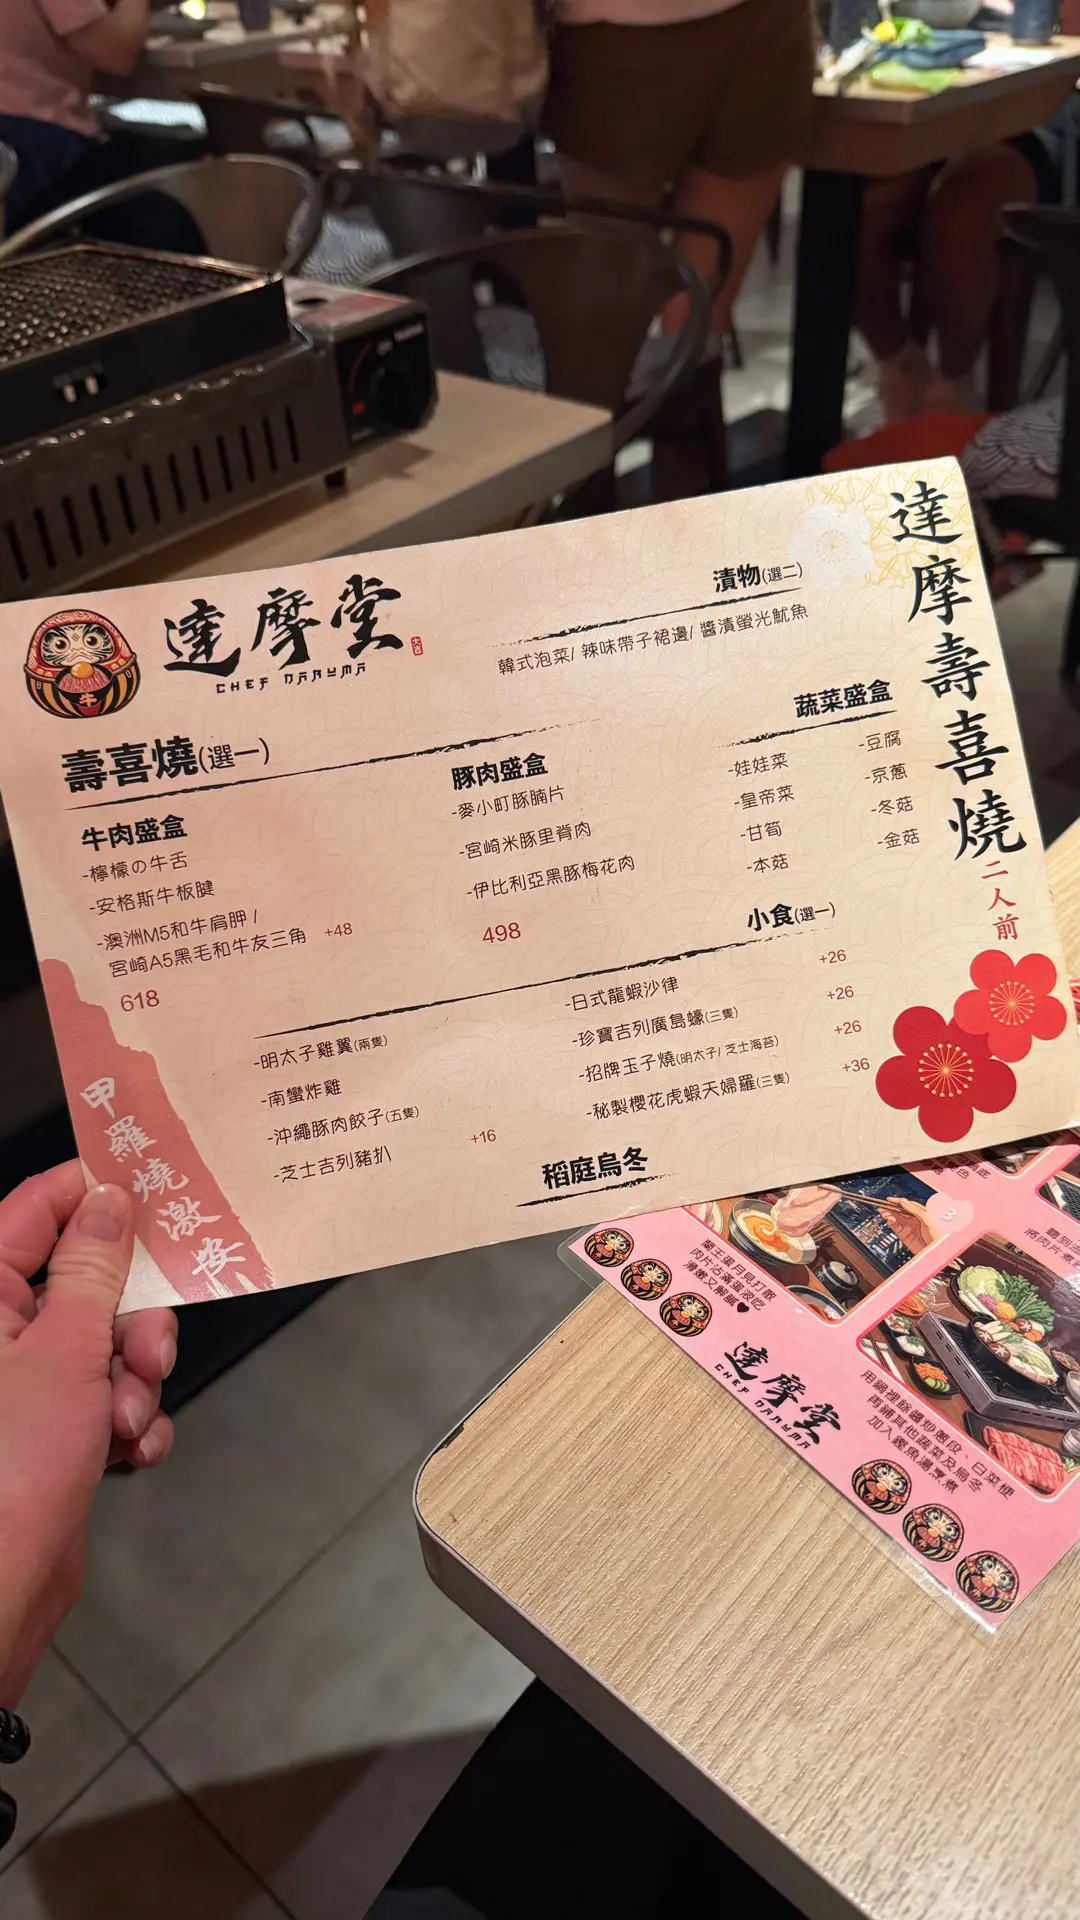 達摩堂
CHEF DARUMA
漬物(選二)
韓式泡菜/ 辣味帶子裙邊/ 醬漬螢光魷魚
壽喜燒(選一)
牛肉盛盒
-檸檬の牛舌
-安格斯牛板腱
-澳洲M5和牛肩胛 /
宮崎A5黑毛和牛友三角 +48
618
豚肉盛盒
-麥小町豚腩片
-宮崎米豚里脊肉
-伊比利亞黑豚梅花肉
498
蔬菜盛盒
-娃娃菜
-皇帝菜
-甘筍
-本菇
-豆腐
-京蔥
-冬菇
-金菇
小食(選一)
-明太子雞翼(兩隻)
-南蠻炸雞
-沖繩豚肉餃子(五隻)
-芝士吉列豬扒 +16
-日式龍蝦沙律 +26
-珍寶吉列廣島蠔(三隻) +26
-招牌玉子燒(明太子/ 芝士海苔) +26
-秘製櫻花虎蝦天婦羅(三隻) +36
稻庭烏冬
達摩壽喜燒
二人前
甲羅燒激安
蘭王蛋月見打散
肉片沾滿蛋液吃
滑嫩又解膩♥
3
達摩堂
CHEF DARUMA
用鍋裡餘醬炒蔥段、白菜梗
再鋪其他蔬菜及烏冬
加入鰹魚湯煮煮